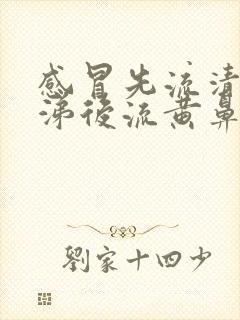 感冒先流清
涕後流黄鼻
劉家十四少